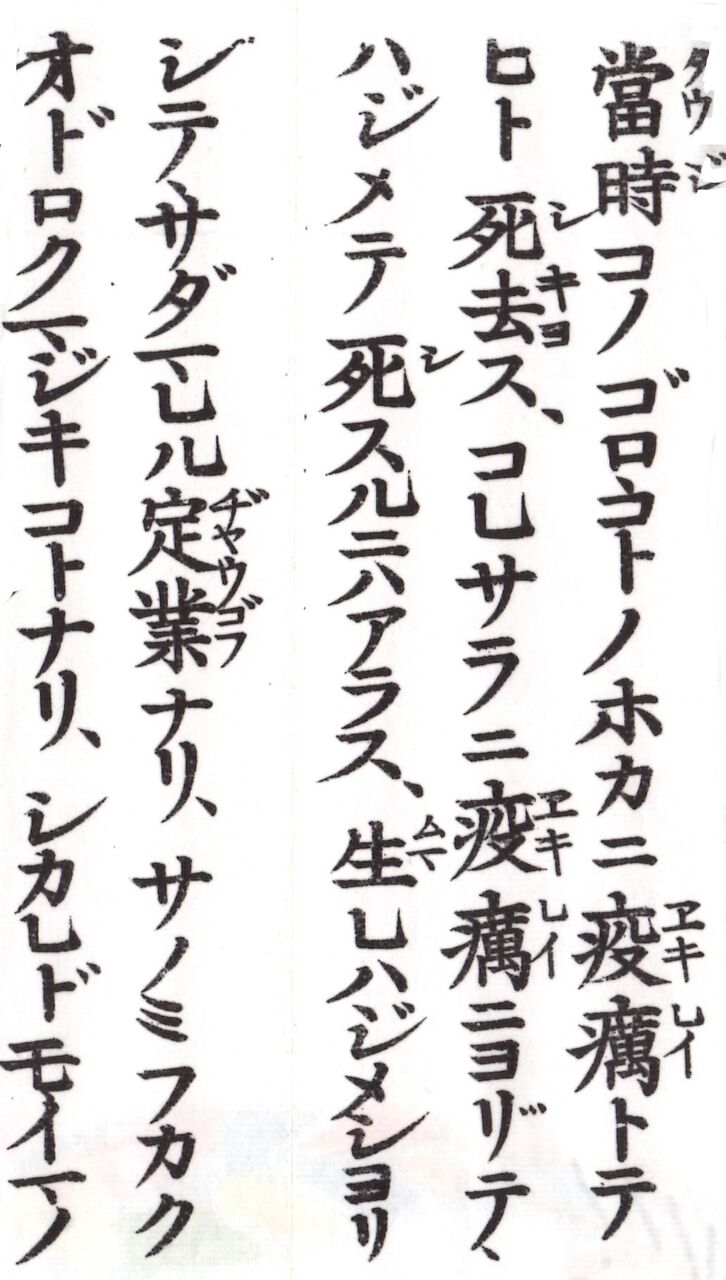 タウジ
當時コノゴロコトノホカニ疫癘トテ
ヱキレイ
ヒト死去ス、コレサラニ疫癘ニヨリテ、
シキヨ
ヱキレイ
ハジメテ死スルニハアラス、生レハジメシヨリ
シ
ムマ
シテサダマレル定業ナリ、サノミフカク
ヂヤウゴフ
オドロクマジキコトナリ、シカレドモイマノ